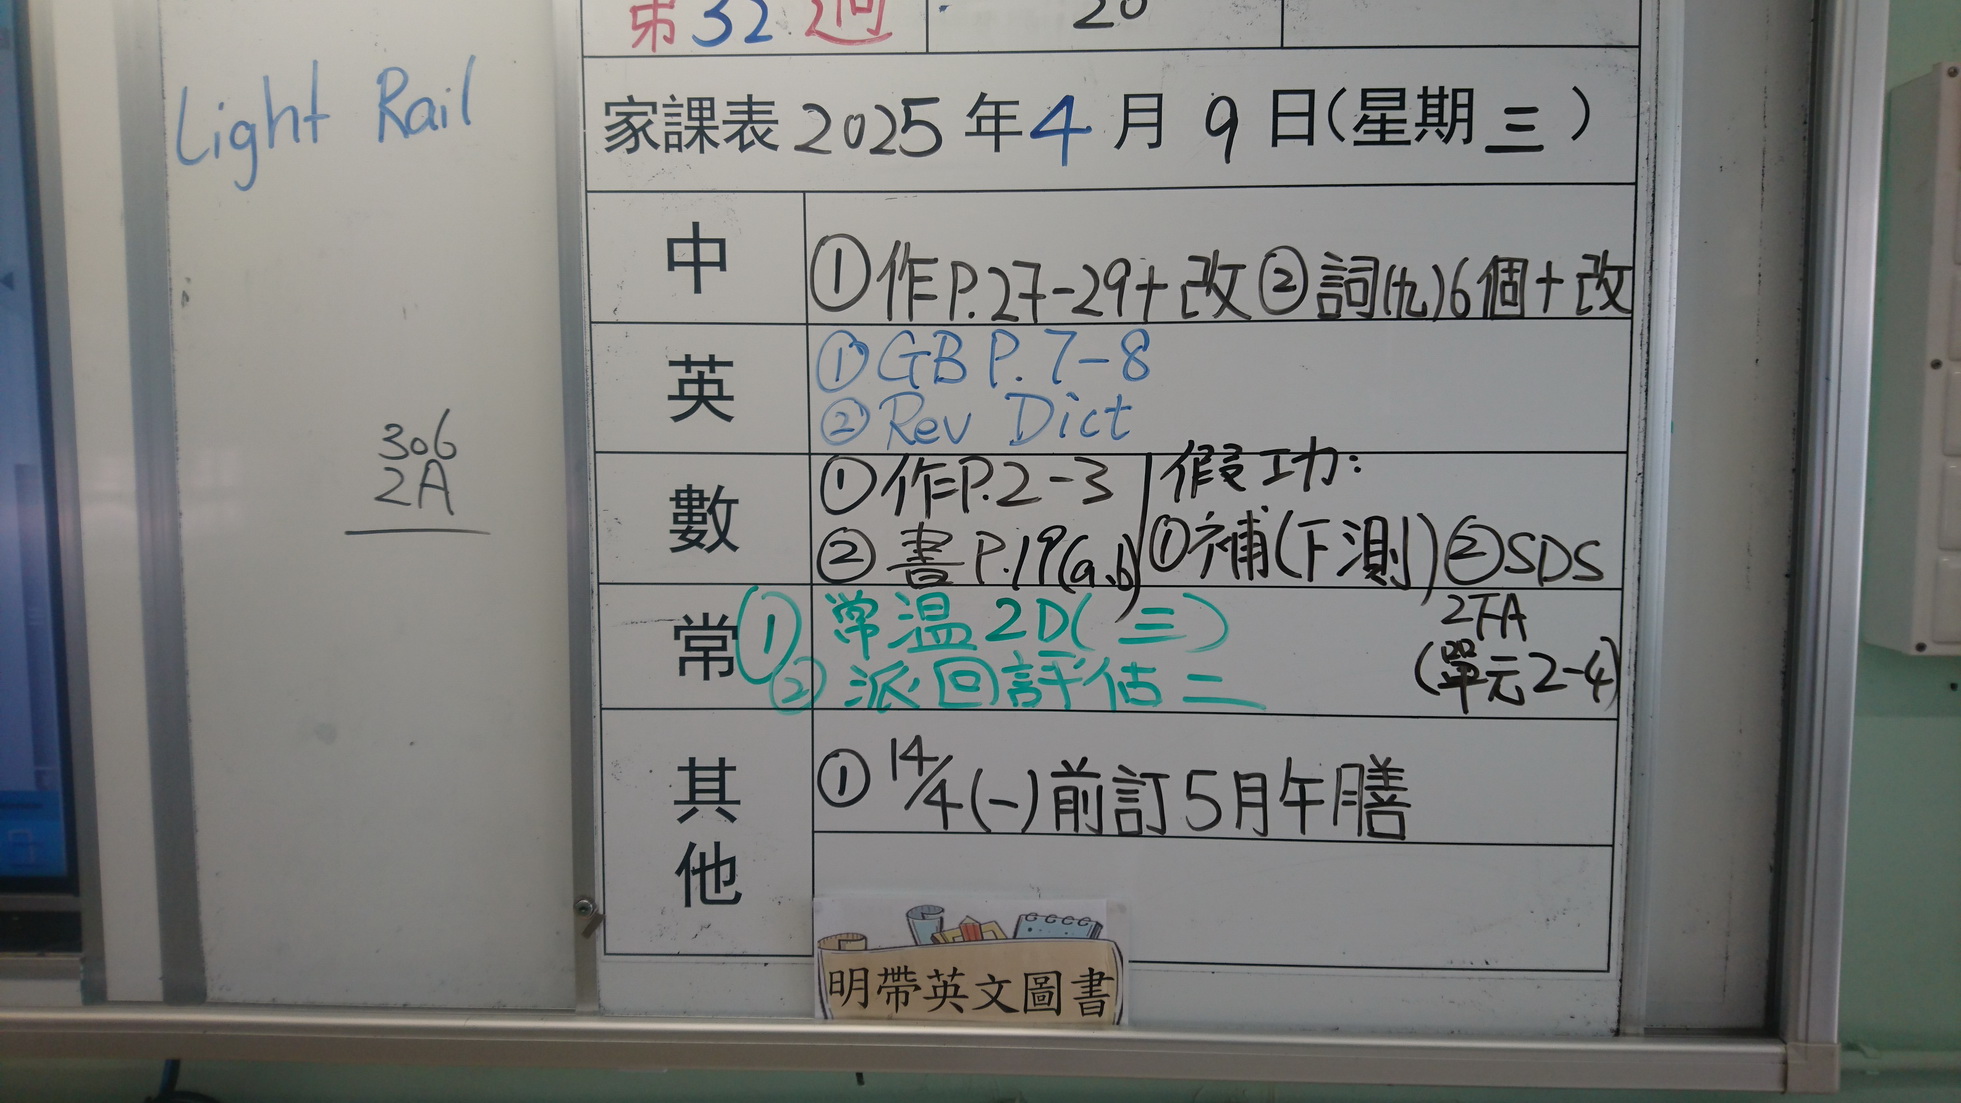 第32週
20
Light Rail
家課表 2025年4月9日(星期三)
中
①作P.27-29+改②詞(九)6個+改
英
①GB P.7-8
②Rev Dict
306
2A
數
①作P.2-3
②書P.19(a,b)
假功:
①補(下測)②SDS
2FA
(單元2-4)
常
①常溫2D(三)
②派回評估二
其他
①14/4(一)前訂5月午膳
明帶英文圖書